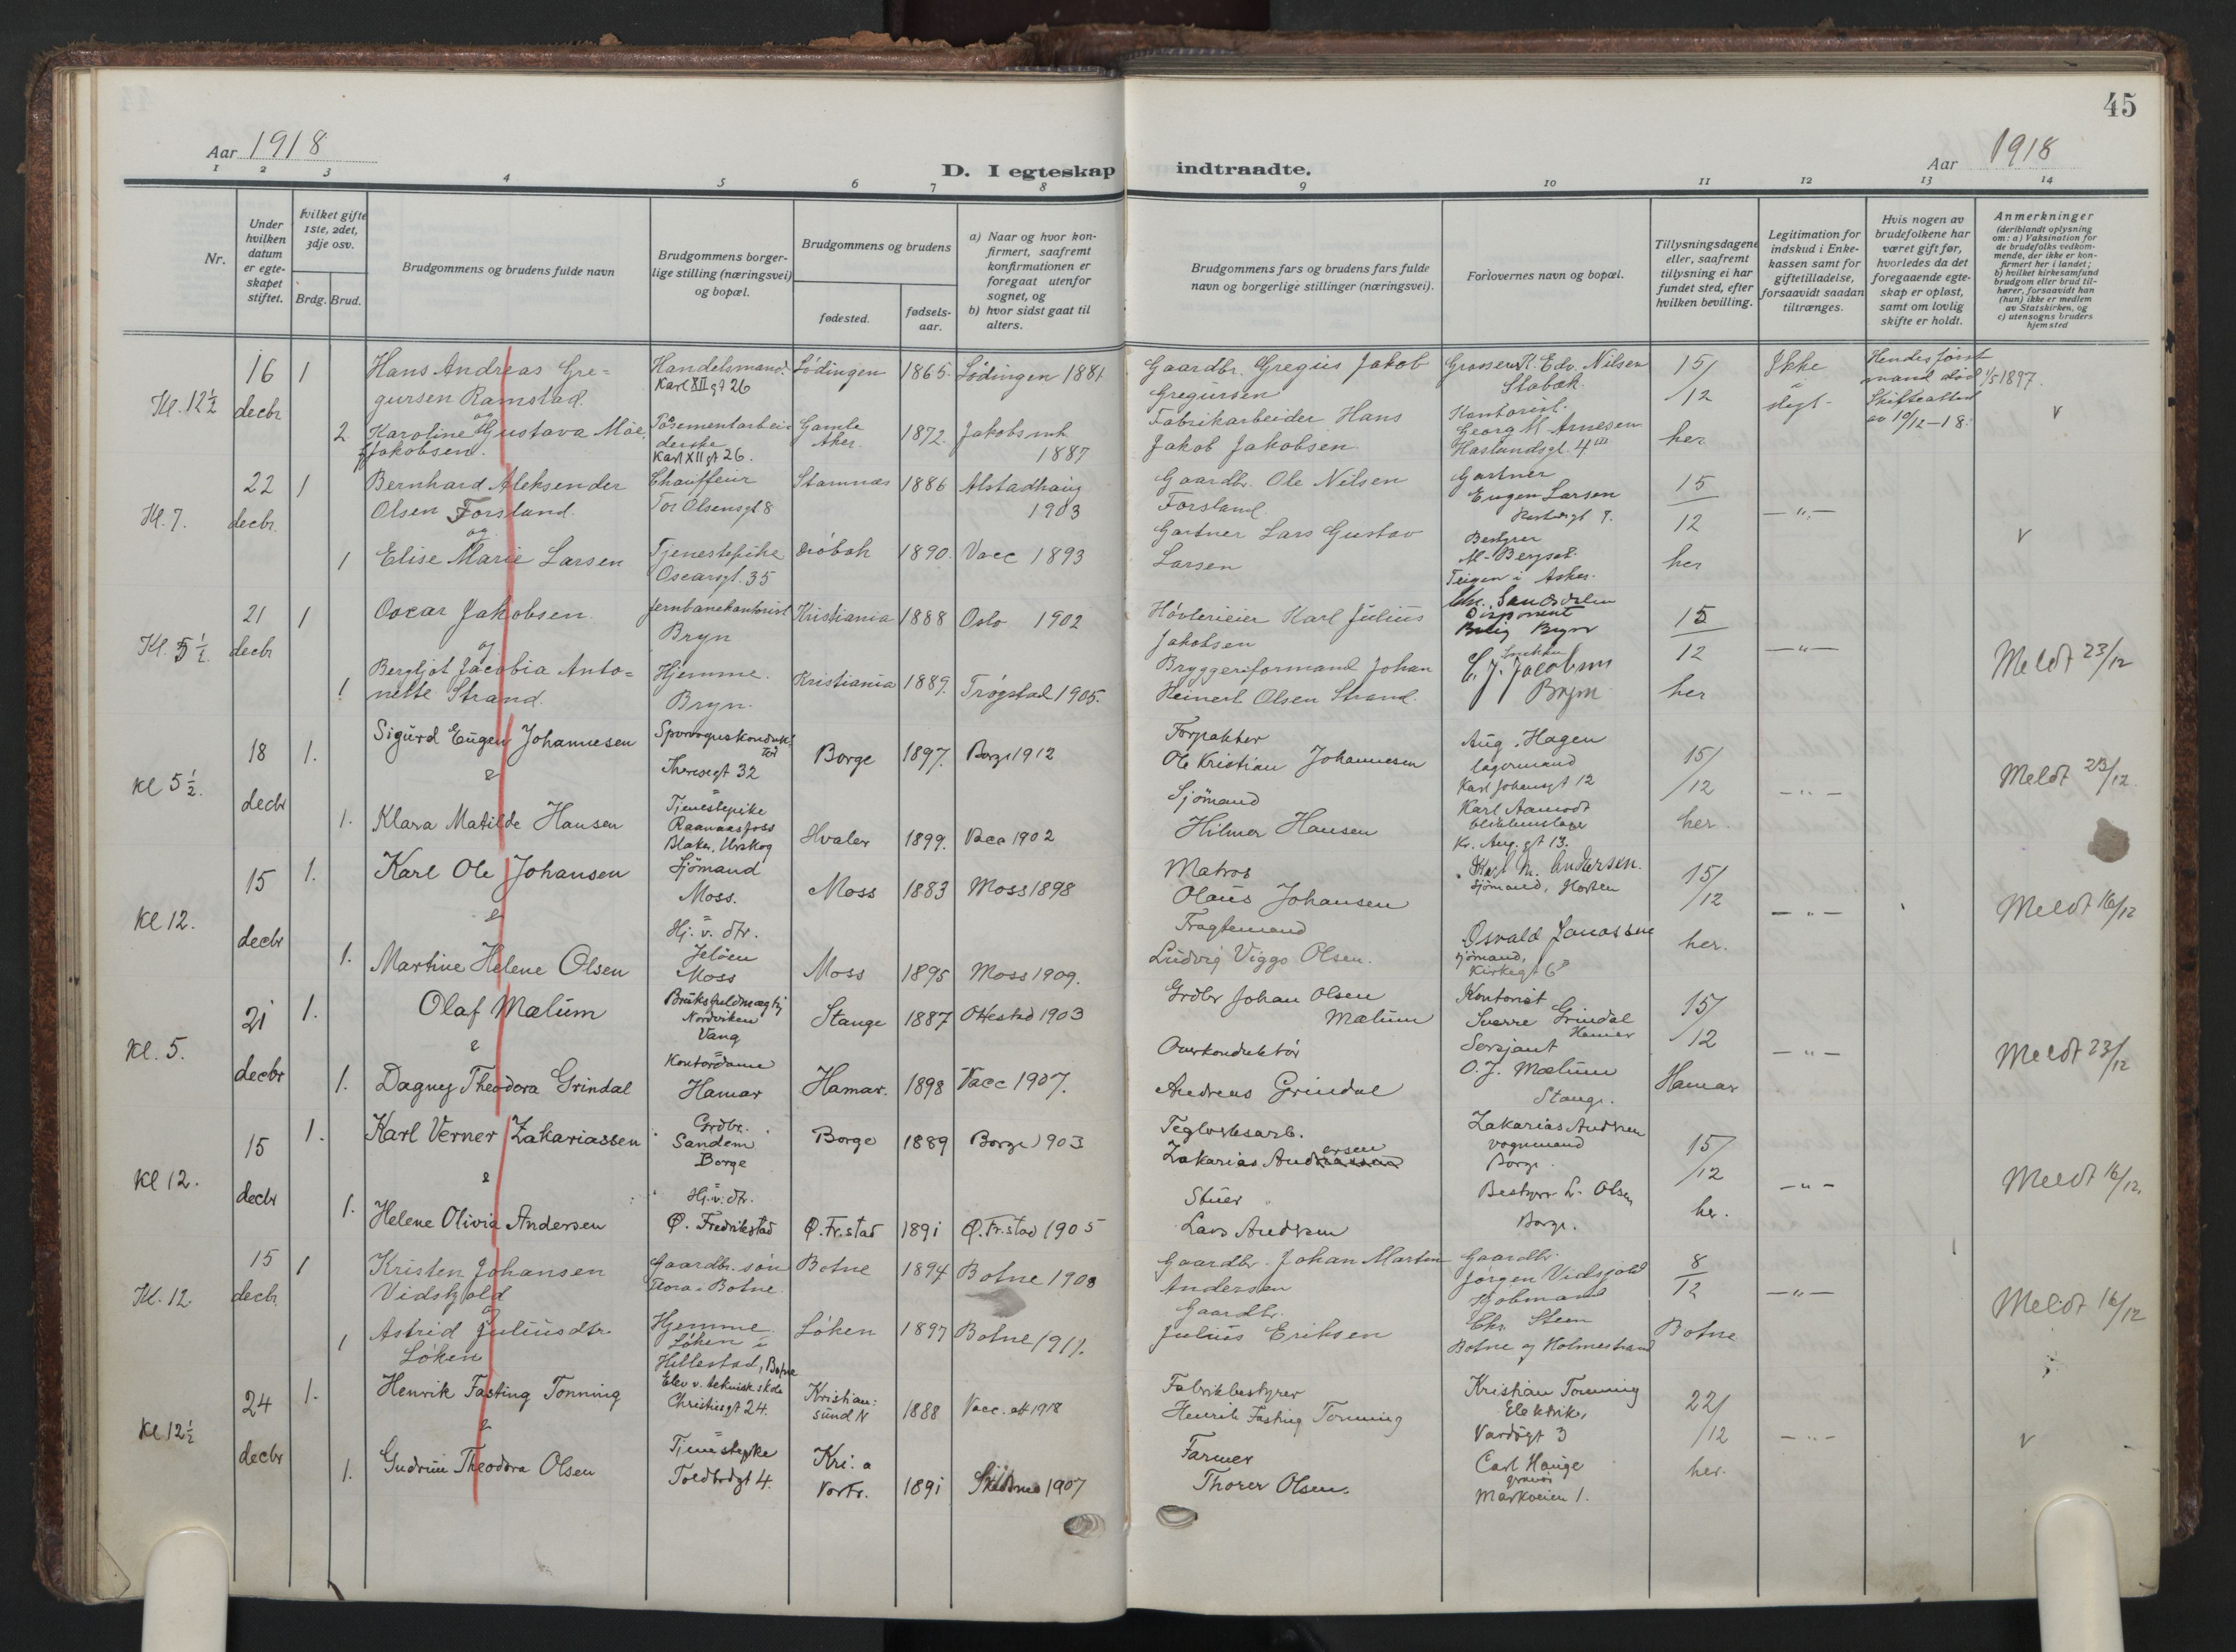 45
Aar 1918
D. I egteskap indtraadte.
Aar 1918
1 2 3 4 5 6 7 8 9 10 11 12 13 14
Nr.
Under hvilken datum er egteskapet stiftet.
Hvilket gifte 1ste, 2det, 3dje osv.
Brdg. Brud.
Brudgommens og brudens fulde navn
Brudgommens borgerlige stilling (næringsvei) og bopæl.
Brudgommens og brudens
fødested.
fødselsaar.
a) Naar og hvor konfirmert, saafremt konfirmationen er foregaat utenfor sognet, og
b) hvor sidst gaat til alters.
Brudgommens fars og brudens fars fulde navn og borgerlige stillinger (næringsvei).
Forlovernes navn og bopæl.
Tillysningsdagene eller, saafremt tillysning ei har fundet sted, efter hvilken bevilling.
Legitimation for indskud i Enkekassen samt for giftetilladelse, forsaavidt saadan tiltrænges.
Hvis nogen av brudefolkene har været gift før, hvorledes da det foregaaende egteskap er opløst, samt om lovlig skifte er holdt.
Anmerkninger (deriblandt oplysning om: a) Vaksination for de brudefolks vedkommende, der ikke er konfirmert her i landet; b) hvilket kirkesamfund brudgom eller brud tilhører, forsaavidt han (hun) ikke er medlem av Statskirken, og c) utensogns bruders hjemsted
Kl. 12½ 16 decbr 1 Hans Andreas Gregursen Ramstad. Handelsmand. Karl XII gt 26 Lödingen 1865. Lödingen 1881
Gaardbr. Gregius Jakob Gregursen Grosser R. Edv. Nilsen Stabæk 15/12 her Ikke slegt Hendes först mand död 1/5 1897. Skifteattest av 10/12-18.
og
2 Karoline Gustava Möe, f. Jakobsen. Pösementarbeiderske Karl XII gt 26. Gamle Aker. 1872. Jakobs mh. 1887
Fabrikarbeider Hans Jakob Jakobsen Kontorist. Georg M Arnesen Haslundsgt. 4 III v
Kl. 7. 22 decbr. 1 Bernhard Aleksender Olsen Forsland. Chauffeur Tor Olsensgt 8 Stamnæs 1886 Alstadhaug 1903
Gaardbr. Ole Nilsen Forsland. Gartner Eugen Larsen 15/12 her -"- v
og
1 Elise Marie Larsen Tjenestepike Oscarsgt. 35 Dröbak 1890. Vacc 1893
Gartner Lars Gustav Larsen Bestyrer M. Bergset Teigen i Asker.
Kl. 5½. 21 decbr 1 Oscar Jakobsen Jernbanekontorist Bryn Kristiania 1888 Oslo 1902
Hövlerieier Karl Julius Jakobsen Chr. Sandsdalen Disponent Bryn 15/12 her -"- Meldt 23/12
og
1 Bergljot Jacobia Antonette Strand. Hjemme. Bryn. Kristiania 1889. Trøgstad 1905.
Bryggeriformand Johan Heinert Olsen Strand. C. J. Jacobsen Bryn
Kl 5½. 18 decbr 1. Sigurd Eugen Johannesen Sporvognskonduktör Theresegt 32 Borge 1897. Borge 1912
Forpakter Ole Kristian Johannesen Aug. Hagen lagermand Karl Johansgt 12 15/12 her. -"- Meldt 23/12.
&
1. Klara Matilde Hansen Tjenestepike Raanaasfoss Blaker, Urskog Hvaler 1899. Vacc 1902
Sjömand Hilmer Hansen Karl Aamodt Kr. Aug. gt 13.
Kl 12. 15 decbr 1. Karl Ole Johansen Sjömand Moss. Moss 1883 Moss 1898
Matros Olaus Johansen Karl M. Andersen. Sjömand, Horten 15/12 her. -"- Meldt 16/12
&
1. Martine Helene Olsen Hj. v. dtr. Jelöen Moss Moss 1895 Moss 1909.
Fragtemand Ludvig Viggo Olsen. Osvald Jonassen sjömand, Kirkegt 6B
Kl. 5. 21 decbr 1. Olaf Mælum Bruksfuldmægtig Nordviken Vang Stange 1887 Ottestad 1903
Grdbr Johan Olsen Mælum Kontorist Sverre Grindal Hamar 15/12 Hamar -"- Meldt 23/12
&
1. Dagny Theodora Grindal Kontordame Hamar Hamar. 1898 Vacc 1907.
Overkonduktör Andreas Grindal Sersjant O. J. Mælum Stange.
Kl 12. 15 decbr 1. Karl Verner Zakariassen Grdbr. Sandem Borge Borge 1889 Borge 1903
Teglverksarb. Zakarias Andersen Zakarias Andersen vognmand Borge. 15/12 her. -"- Meldt 16/12.
&
1. Helene Olivia Andersen Hj. v. dtr. Ø. Fredrikstad Ø. Fr.stad 1891 Ø. Fr.stad 1905
Stuer Lars Andersen Bestyrer L. Olsen Borge.
Kl. 12 15 decbr. 1 Kristen Johansen Vidskjold Gaardbr. sön Botne 1894 Botne 1908
Gaardbr. Johan Martin Andersen Gaardbr. Jörgen Vidsjold 8/12 Botne -"- Meldt 16/12
og
1 Astrid Juliusdtr. Löken Hjemme Löken i Hillestad, Botne Löken 1897 Botne 1911.
Gaardbr. Julius Eriksen Kjöbmand Chr. Steen Botne og Holmestrand
Kl 12½ 24 decbr 1. Henrik Fasting Tonning Elev v. teknisk skole Christiesgt 24. Kristiansund N 1888 Vacc. att 1918
Fabrikbestyrer Henrik Fasting Tonning Kristian Tonning Elektriker, Vardögt 3 22/12 her. -"- v
&
1. Gudrun Theodora Olsen Tjenestepike Toldbodgt 4. Kri:a Vorfr. 1891 1907
Farmer Thorer Olsen. Carl Hauge gravör Markveien 1.